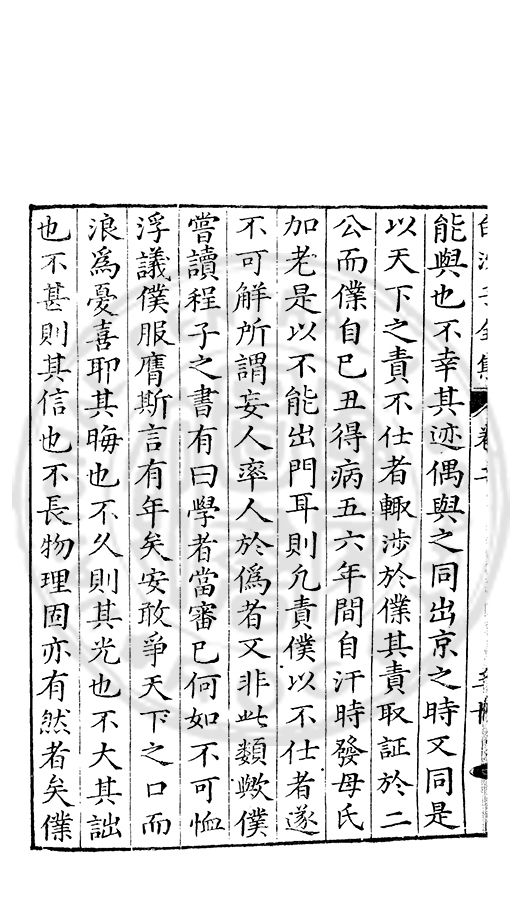 白沙子全集 卷二
能與也不幸其迹偶與之同出京之時又同是
以天下之責不仕者輙涉於僕其責取証於二
公而僕自己丑得病五六年間自汗時發母氏
加老是以不能出門耳則凢責僕以不仕者遂
不可解所謂妄人率人於僞者又非此類歟僕
嘗讀程子之書有曰學者當審己何如不可恤
浮議僕服膺斯言有年矣安敢爭天下之口而
浪爲憂喜耶其晦也不久則其光也不大其詘
也不甚則其信也不長物理固亦有然者矣僕